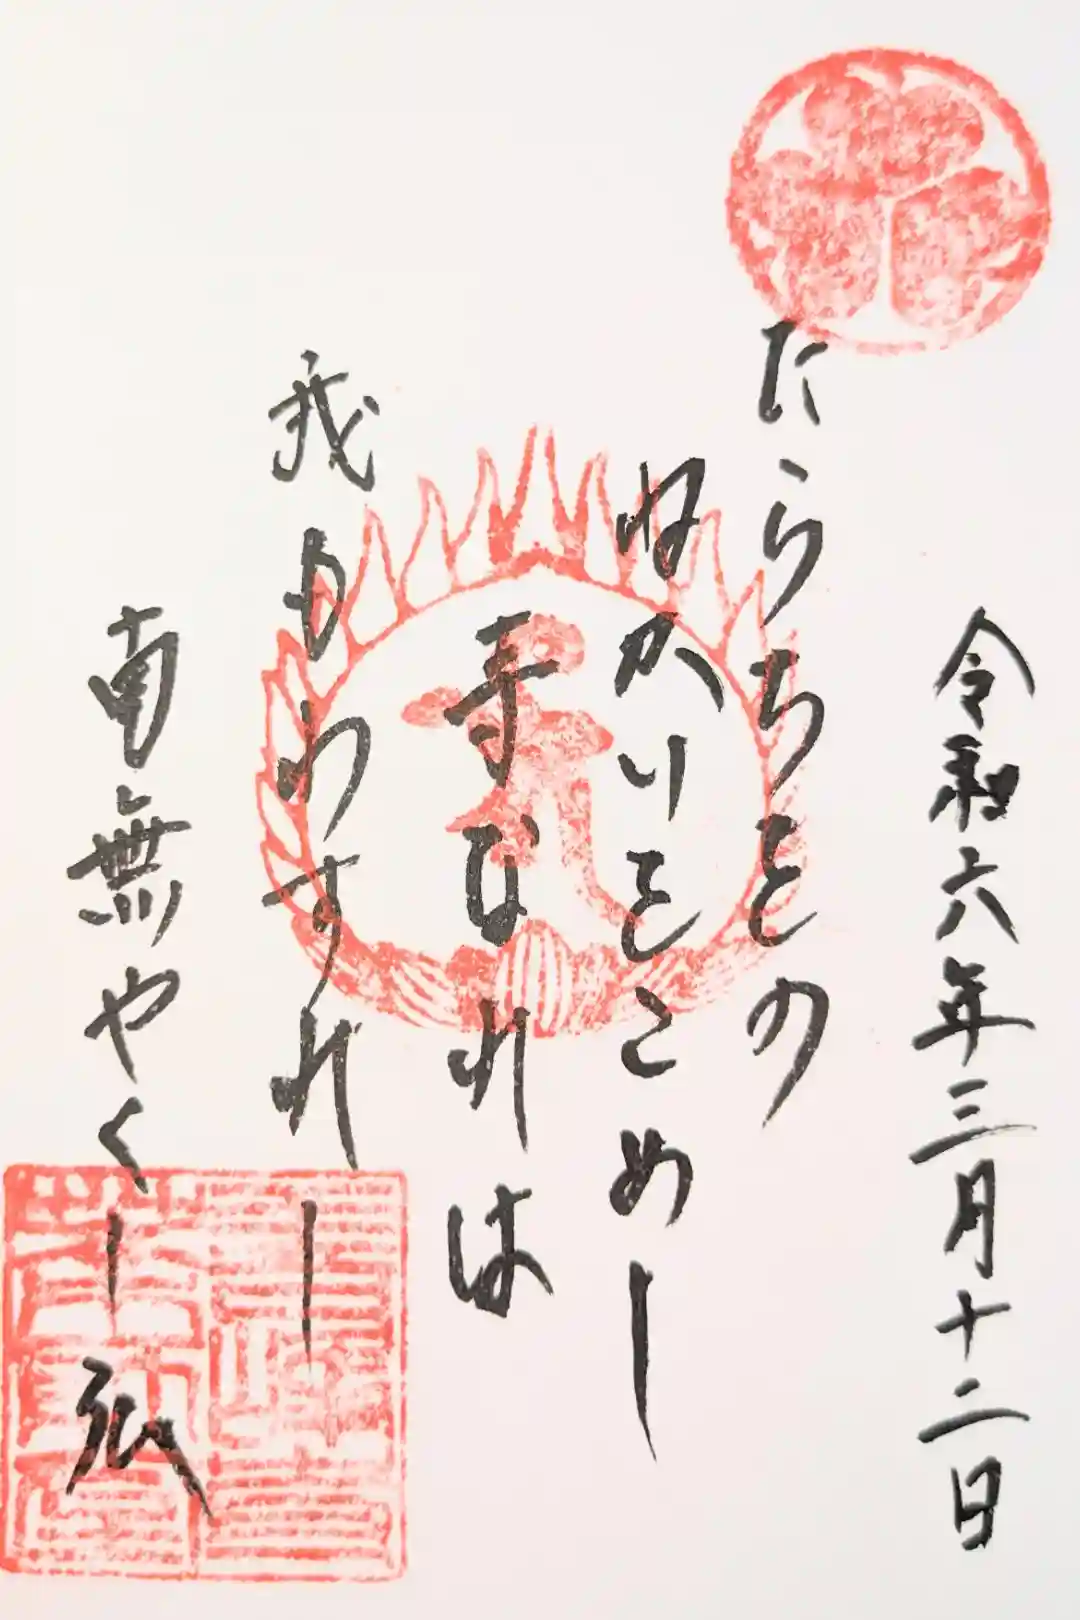 令和六年三月十二日
たらちをの
ねかいをこめし
寺なれは
我もわすれし
南無やくし仏